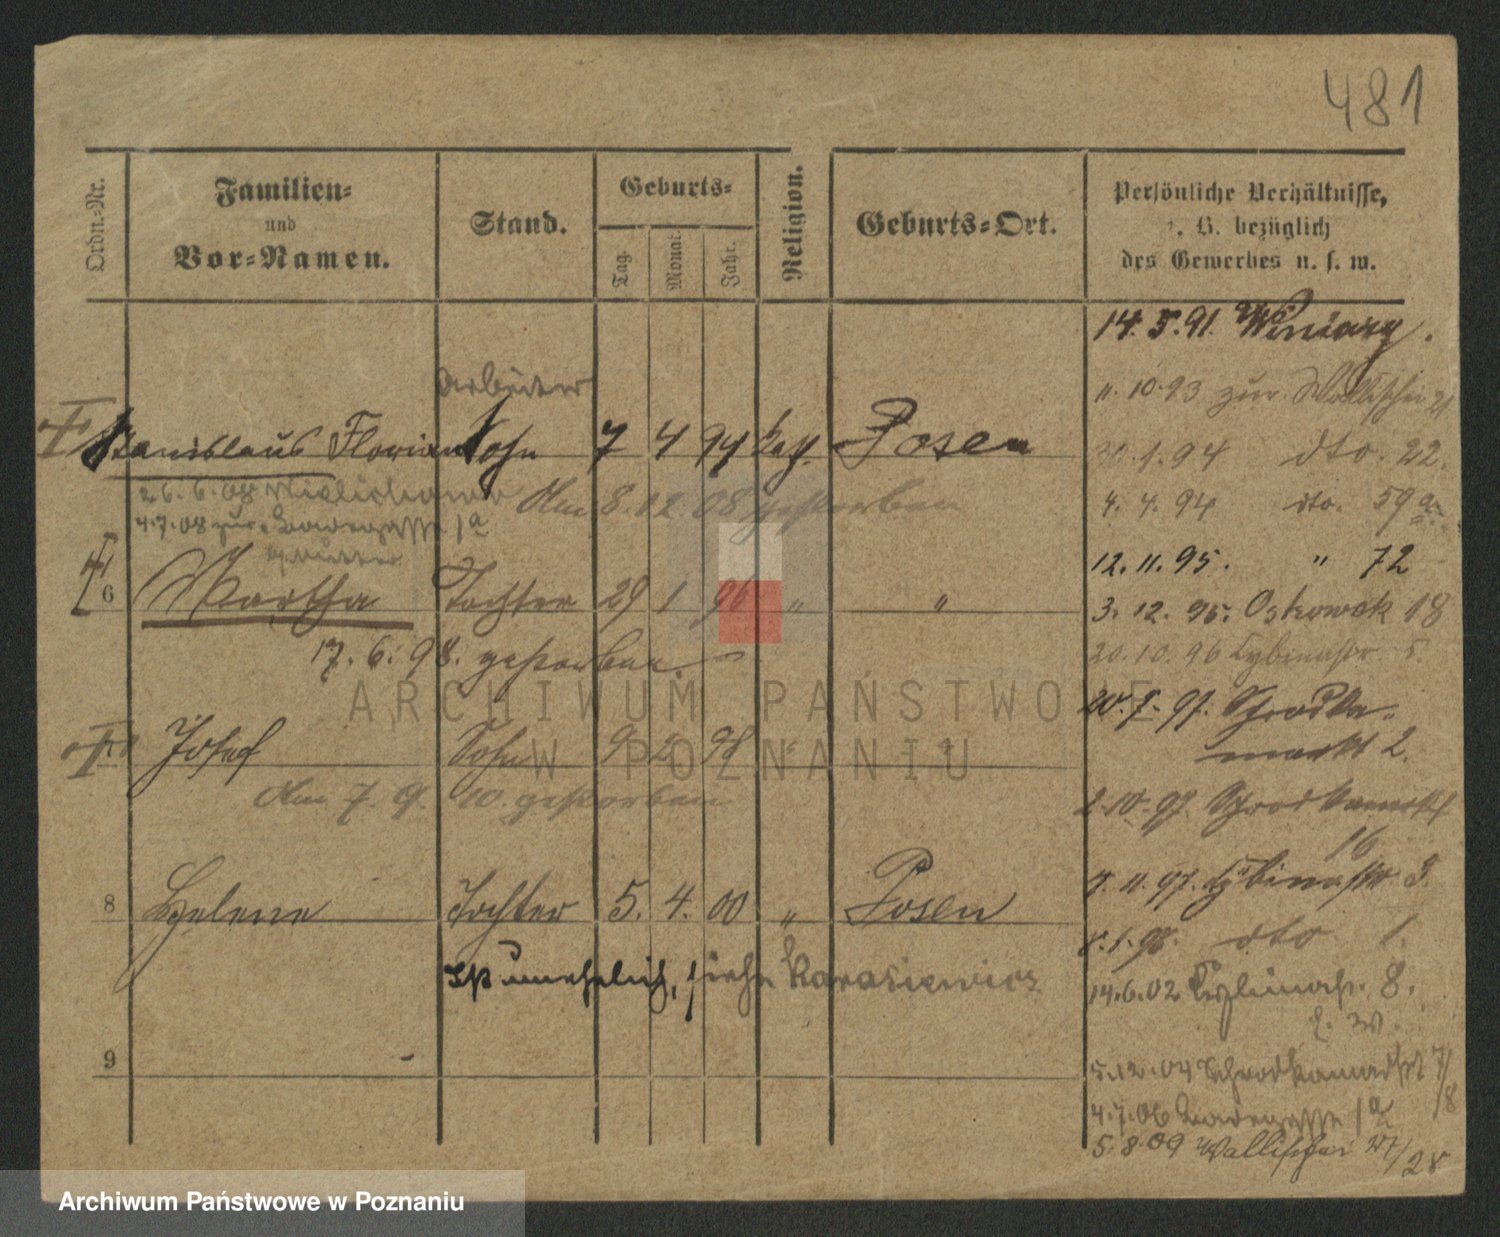 481
Ordn.-Nr.
Familien-
und
Vor-Namen.
Stand.
Geburts-
Tag.
Monat.
Jahr.
Religion.
Geburts-Ort.
Persönliche Verhältnisse,
z. B. bezüglich
des Gewerbes u. s. w.
14. 5. 91. Winiary.
Arbeiter
11. 10. 93 zur. Wallischei 21
Stanislaus Florian Sohn 7 4 94 kath. Posen
30. 1. 94 dto. 22.
26. 6. 08
Am 8. 12 08 gestorben
4. 4. 94 dto. 59a.
4. 7. 08 zur. Badegasse 1a
z Mutter
12. 11. 95. " 72
6 Martha Tochter 29 1 96 " "
3. 12. 95. Ostrowek 18
17. 6. 98. gestorben.
20. 10. 96 Cybinastr 5.
20. 7. 97. Schrodka-
markt 2.
Josef Sohn 9 2 98 " "
Am 7. 9. 10. gestorben
2. 10. 97. Schrodkamarkt
16
7. 11. 97. Cybinastr. 3.
8 Helene Tochter 5. 4. 00 " Posen
8. 1. 98. dto 1.
ist unehelich, siehe Karasiewicz
14. 6. 02 Cybinastr. 8.
9
5. 12. 04 Schrodkamarkt 7/8
4. 7. 06 Badegasse 1a
5. 8. 09 Wallischei 27/28
ARCHIWUM PAŃSTWOWE
W POZNANIU
Archiwum Państwowe w Poznaniu